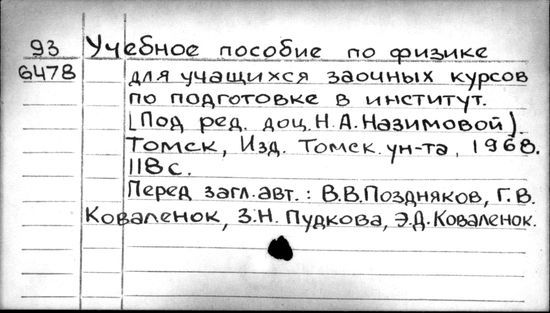 93 Учебное пособие по физике
6478 для учащихся заочных курсов
по подготовке в институт.
[Под ред. доц. Н.А. Назимовой].
Томск, Изд. Томск. ун-та, 1968.
118 с.
Перед загл. авт.: В.В. Поздняков, Г.В.
Коваленок, З.Н. Пудкова, Э.Д. Коваленок.